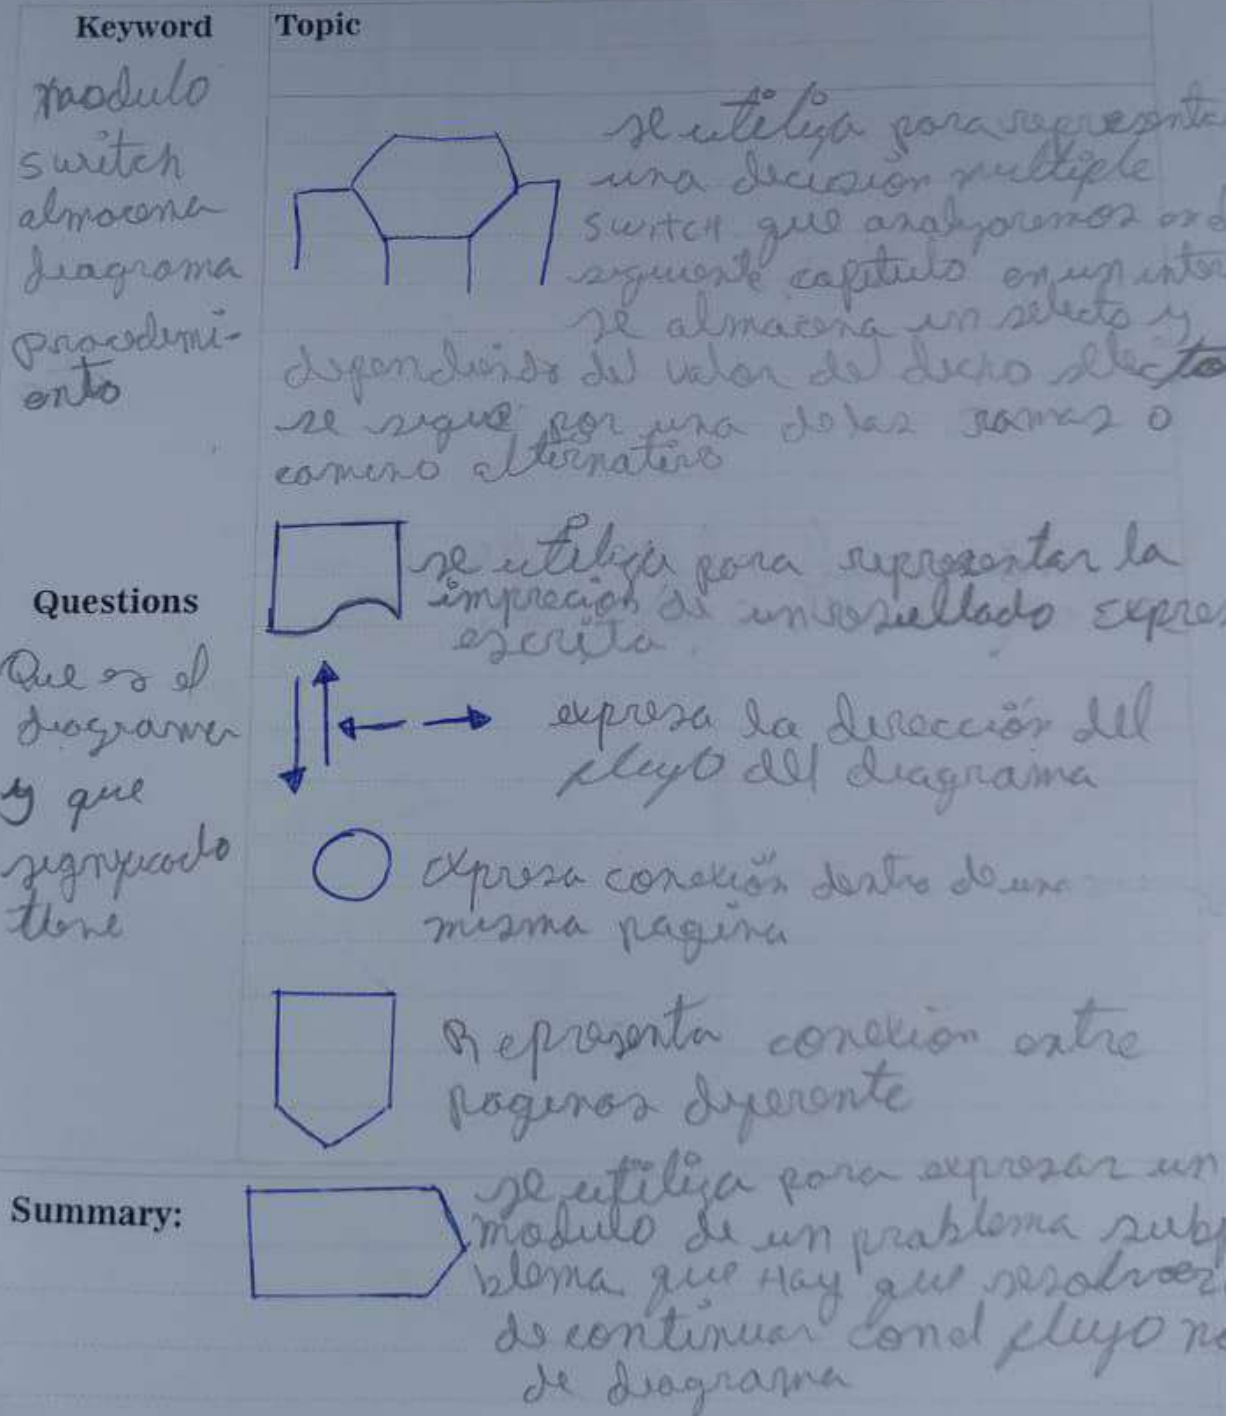 Keyword
modulo
switch
almacena
diagrama
procedimi-
ento
Questions
Que es el
diagrama
y que
significado
tiene
Topic
se utiliza para representa
una decisión multiple
switch que analizaremos en
siguiente capitulo en un inter
se almacena un selecto y
dependiendo del valor de dicho selecto
se sigue por una de las ramas o
camino alternativo
se utiliza para representar la
impreción de un resultado expres
escrita.
expresa la dirección del
flujo del diagrama
expresa conexión dentro de una
misma pagina
Representa conexión entre
paginas diferente
Summary:
se utiliza para expresar un
modulo de un problema subp
blema que Hay que resolver
de continuar con el flujo no
de diagrama